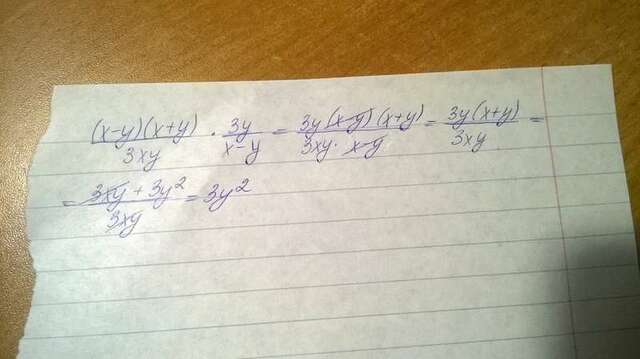 (x-y)(x+y)/3xy · 3y/x-y = 3y(x-y)(x+y)/3xy·x-y = 3y(x+y)/3xy =
= 3xy+3y²/3xy = 3y²